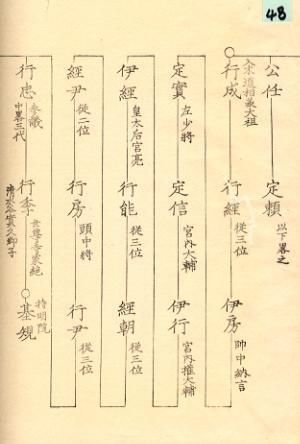 48
公任
定頼
以下畧之
○行成
入木道相承大祖
行經
從三位
伊房
帥中納言
定實
左少將
定信
宮内大輔
伊行
宮内權大輔
伊經
皇太后宮亮
行能
從三位
經朝
從三位
經尹
從二位
行房
頭中將
行尹
從三位
行忠
参議
中畧三代
行季
世尊寺家絶
清水谷實久卿子
○基規
持明院